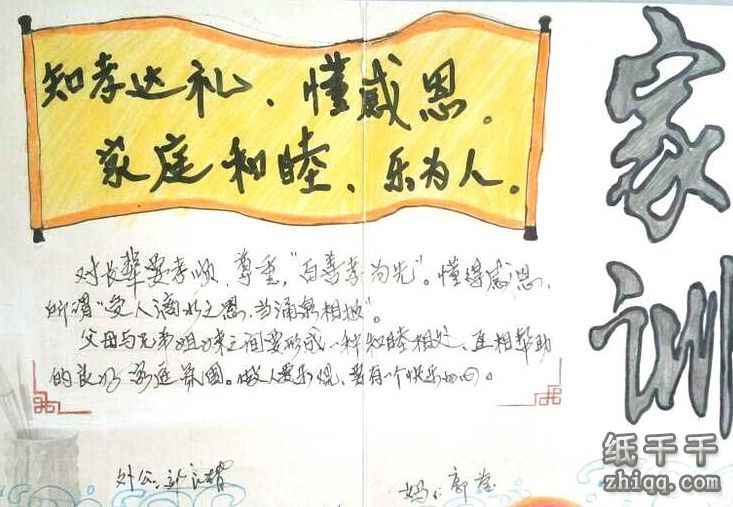 知孝达礼、懂感恩。
家庭和睦、乐为人。
家训
对长辈要孝顺、尊重，"百善孝为先"。懂得感恩，
所谓"受人滴水之恩，当涌泉相报"。
父母与兄弟姐妹之间要形成一种和睦相处、互相帮助
的良好家庭氛围。做人要乐观，要有一个快乐的心。
外公：
妈：郭莹
纸干干
zhiqq.com